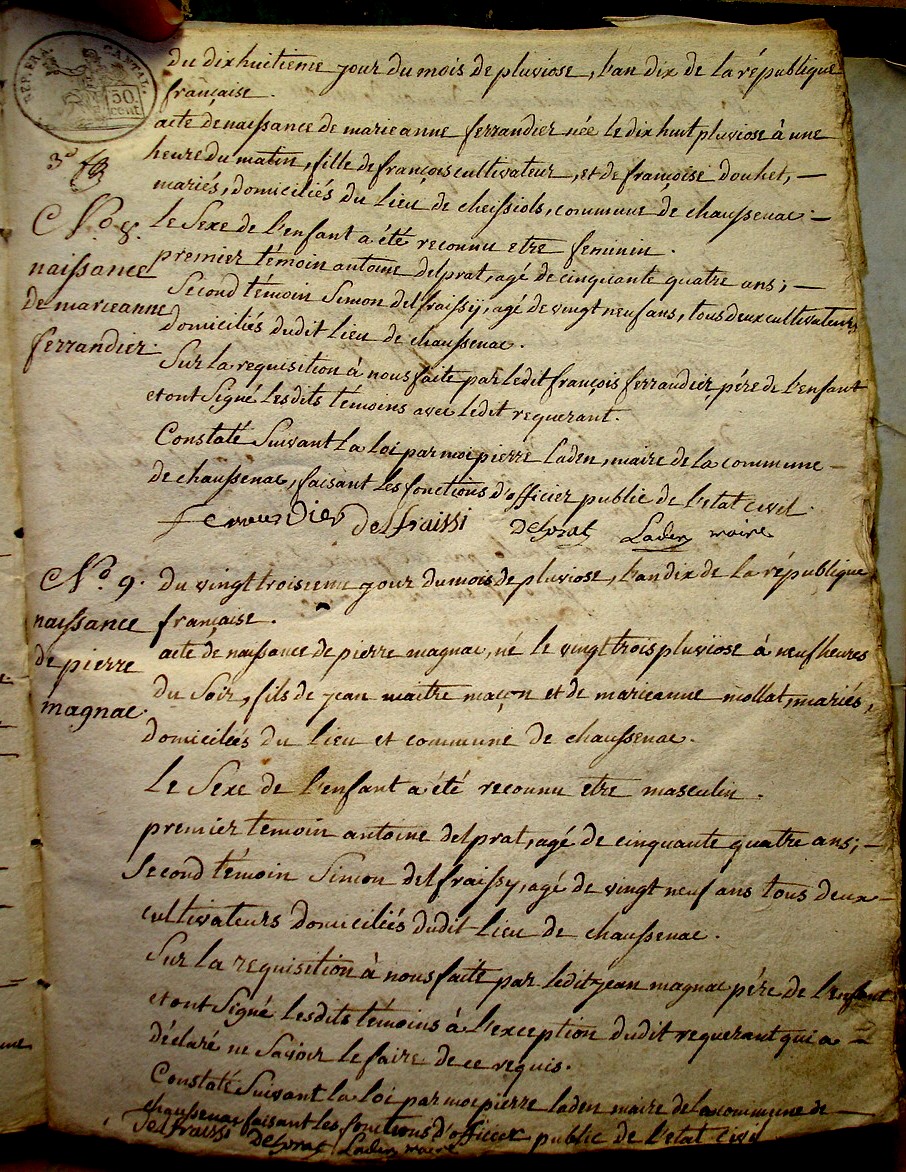 REP. FRA. CANTAL.
50
CENT
du dixhuitieme jour du mois de pluviose, l'an dix de la république
française.
acte de naissance de marieanne ferrandier née le dix huit pluviose à une
heure du matin, fille de françois cultivateur, et de françoise douhet, —
mariés, domiciliés du lieu de cheissiols, commune de chaussenac. —
Le Sexe de l'enfant a été reconnu etre feminin.
premier témoin antoine delprat, agé de cinquante quatre ans; —
Second témoin Simon delfraissy, agé de vingt neuf ans, tous deux cultivateurs
domiciliés dudit lieu de chaussenac.
Sur la requisition à nous faite par ledit françois ferrandier, pére de l'enfant
et ont Signé lesdits témoins avec ledit requerant.
Constaté Suivant la loi par moi pierre laden, maire de la commune —
de chaussenac, faisant les fonctions d'officier public de l'etat civil.
delfraissi delprat Laden maire
3e
N.o 8.
naissance
de marieanne
ferrandier.
N.o 9.
naissance
de pierre
magnac.
du vingt troisieme jour du mois de pluviose, l'an dix de la république
française.
acte de naissance de pierre magnac, né le vingt trois pluviose à neuf heures
du Soir, fils de jean maitre maçon et de marieanne mollat, mariés,
domiciliés du lieu et commune de chaussenac.
Le Sexe de l'enfant a été reconnu etre masculin.
premier temoin antoine delprat, agé de cinquante quatre ans; —
Second témoin Simon delfraissy, agé de vingt neuf ans tous deux —
cultivateurs domiciliés dudit lieu de chaussenac.
Sur la requisition à nous faite par ledit jean magnac pére de l'enfant
et ont Signé lesdits témoins à l'exception dudit requerant qui a —
déclaré ne Savoir le faire de ce requis.
Constaté Suivant la loi par moi pierre laden maire de la commune de —
chaussenac faisant les fonctions d'officier public de l'etat civil
delfraissi delprat Laden maire